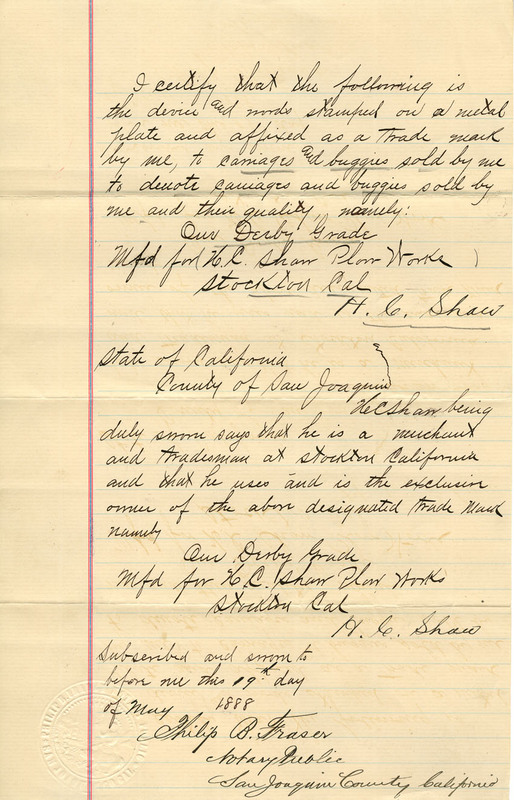 I certify that the following is
the device and words stamped on a metal
plate and affixed as a trade mark
by me, to carriages and buggies sold by me
to denote carriages and buggies sold by
me and their quality, namely:
Our Derby Grade
Mfd for H.C. Shaw Plow Works
Stockton Cal
H. C. Shaw
State of California
County of San Joaquin
H C Shaw being
duly sworn says that he is a merchant
and tradesman at Stockton California
and that he uses and is the exclusive
owner of the above designated trade mark
namely
Our Derby Grade
Mfd for H.C. Shaw Plow Works
Stockton Cal
H. C. Shaw
Subscribed and sworn to
before me this 19th day
of May 1888
Philip B. Fraser
Notary Public
San Joaquin County California